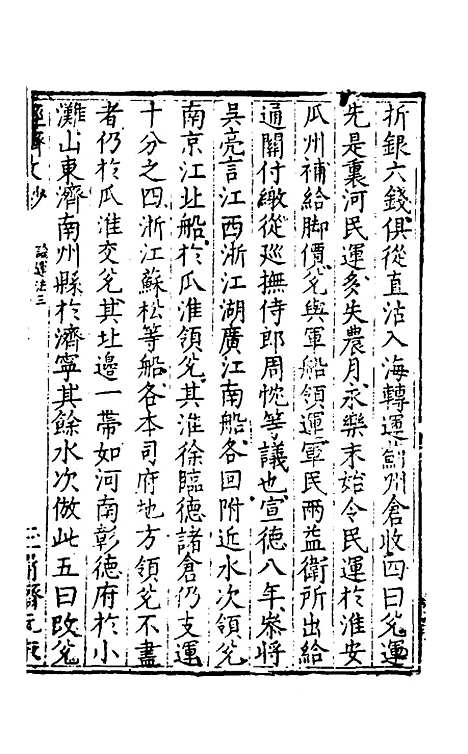 折銀六錢俱從直沽入海轉運薊州倉收四曰兌運
先是裏河民運多失農月永樂末始令民運於淮安
瓜州補給脚價兌與軍船領運軍民兩益衛所出給
通關付繳從廵撫侍郎周忱等議也宣德八年叅將
吳亮言江西浙江湖廣江南船各回附近水次領兌
南京江北船於瓜淮領兌其淮徐臨德諸倉仍支運
十分之四浙江蘇松等船各本司府地方領兌不盡
者仍於瓜淮交兌其北邊一帶如河南彰德府於小
灘山東濟南州縣於濟寧其餘水次倣此五曰改兌
經濟文抄
運法三